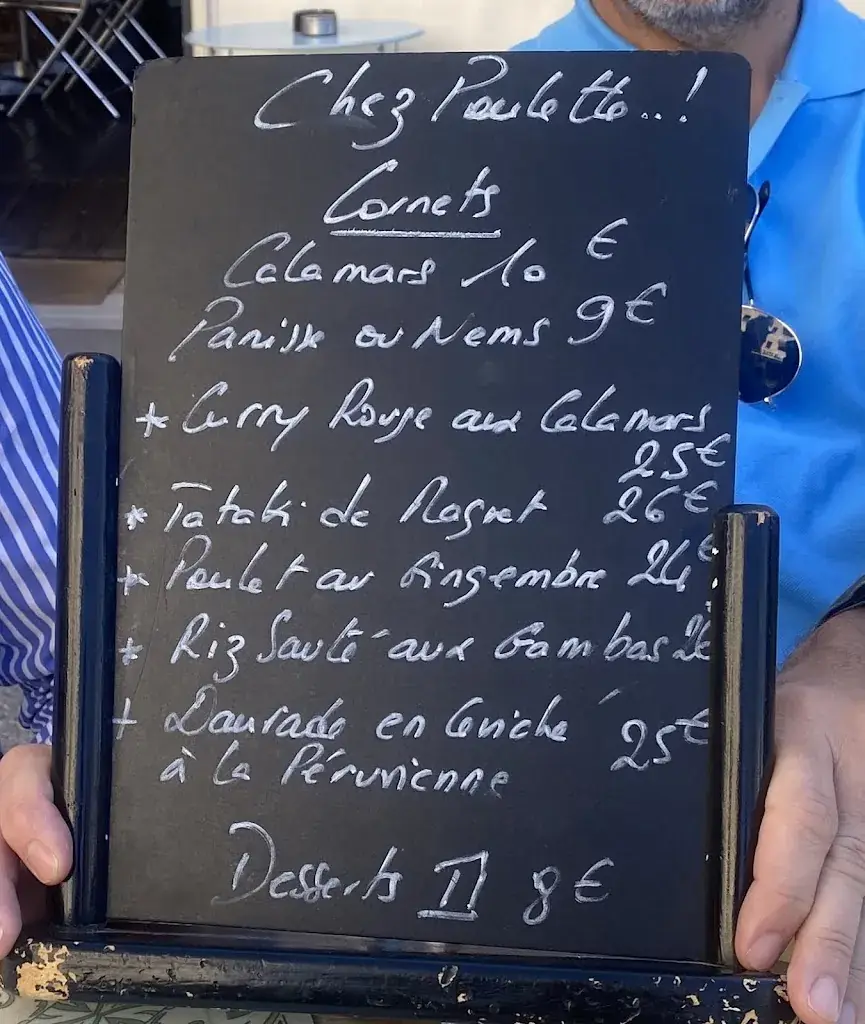 Chez Poulette..!
Cornets
Calamars 10 €
Panisse ou Nems 9 €
* Curry Rouge aux Calamars
25 €
* Tataki de Magret 26 €
* Poulet au Gingembre 24 €
* Riz Sauté aux Gambas
+ Daurade en Céviché 25 €
à la Péruvienne
Desserts 8 €